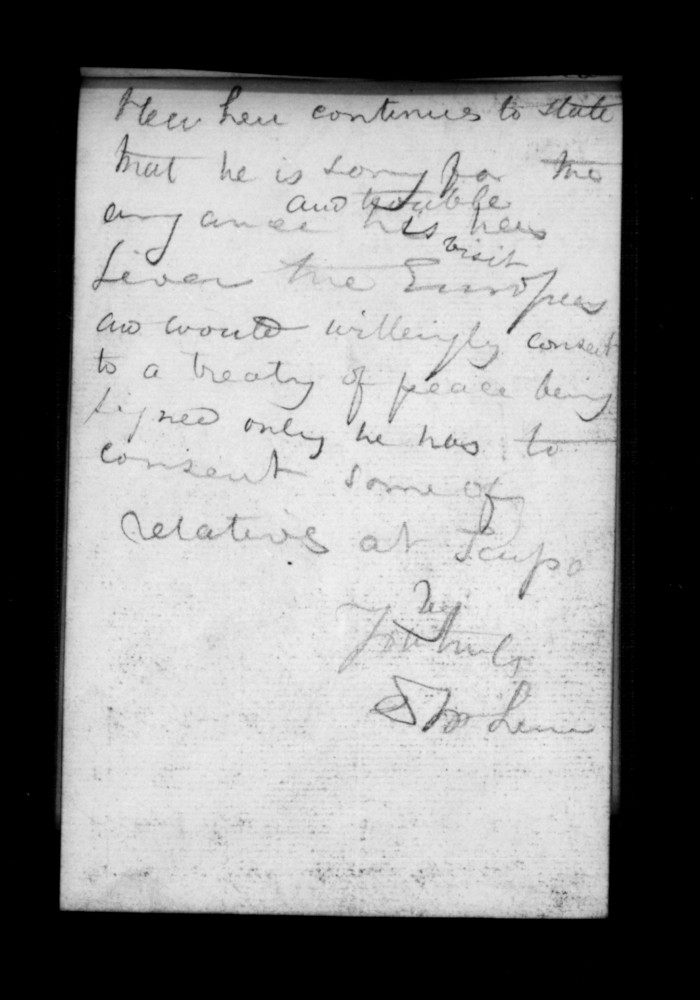 Heu heu continues to state
that he is sorry for the
and trouble
any ance his has
visit
Given the Europeans
and would willingly consent
to a treaty of peace being
signed only he has to
consent some of
relatives at Taupo
Yours truly